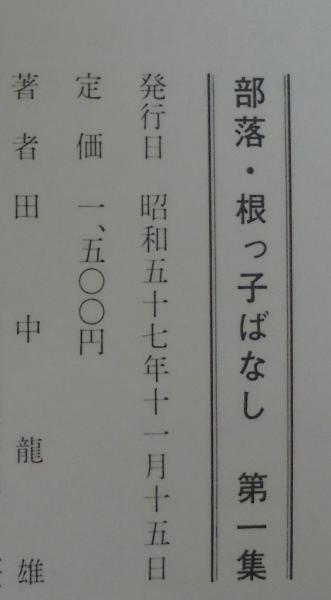 部落・根っ子ばなし 第一集
発行日 昭和五十七年十一月十五日
定価 一、五〇〇円
著者 田中龍雄